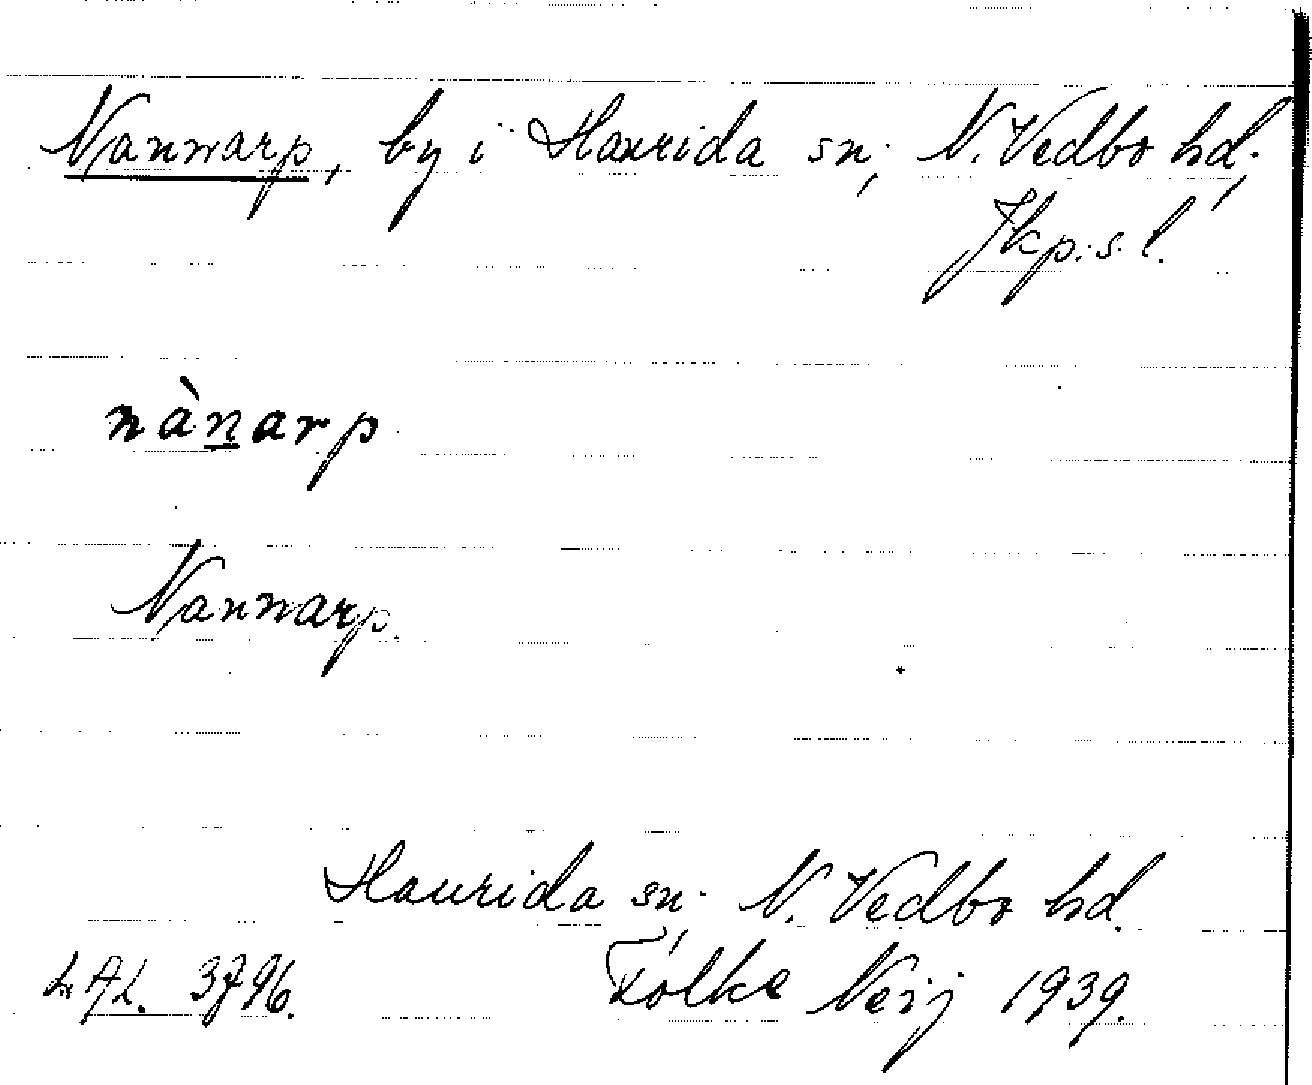 Nannarp, by i Haurida sn, N. Vedbo hd.,
Jkp.s.l.
nànarp
Nannarp.
Haurida sn, N. Vedbo hd.
Folke Neij 1939.